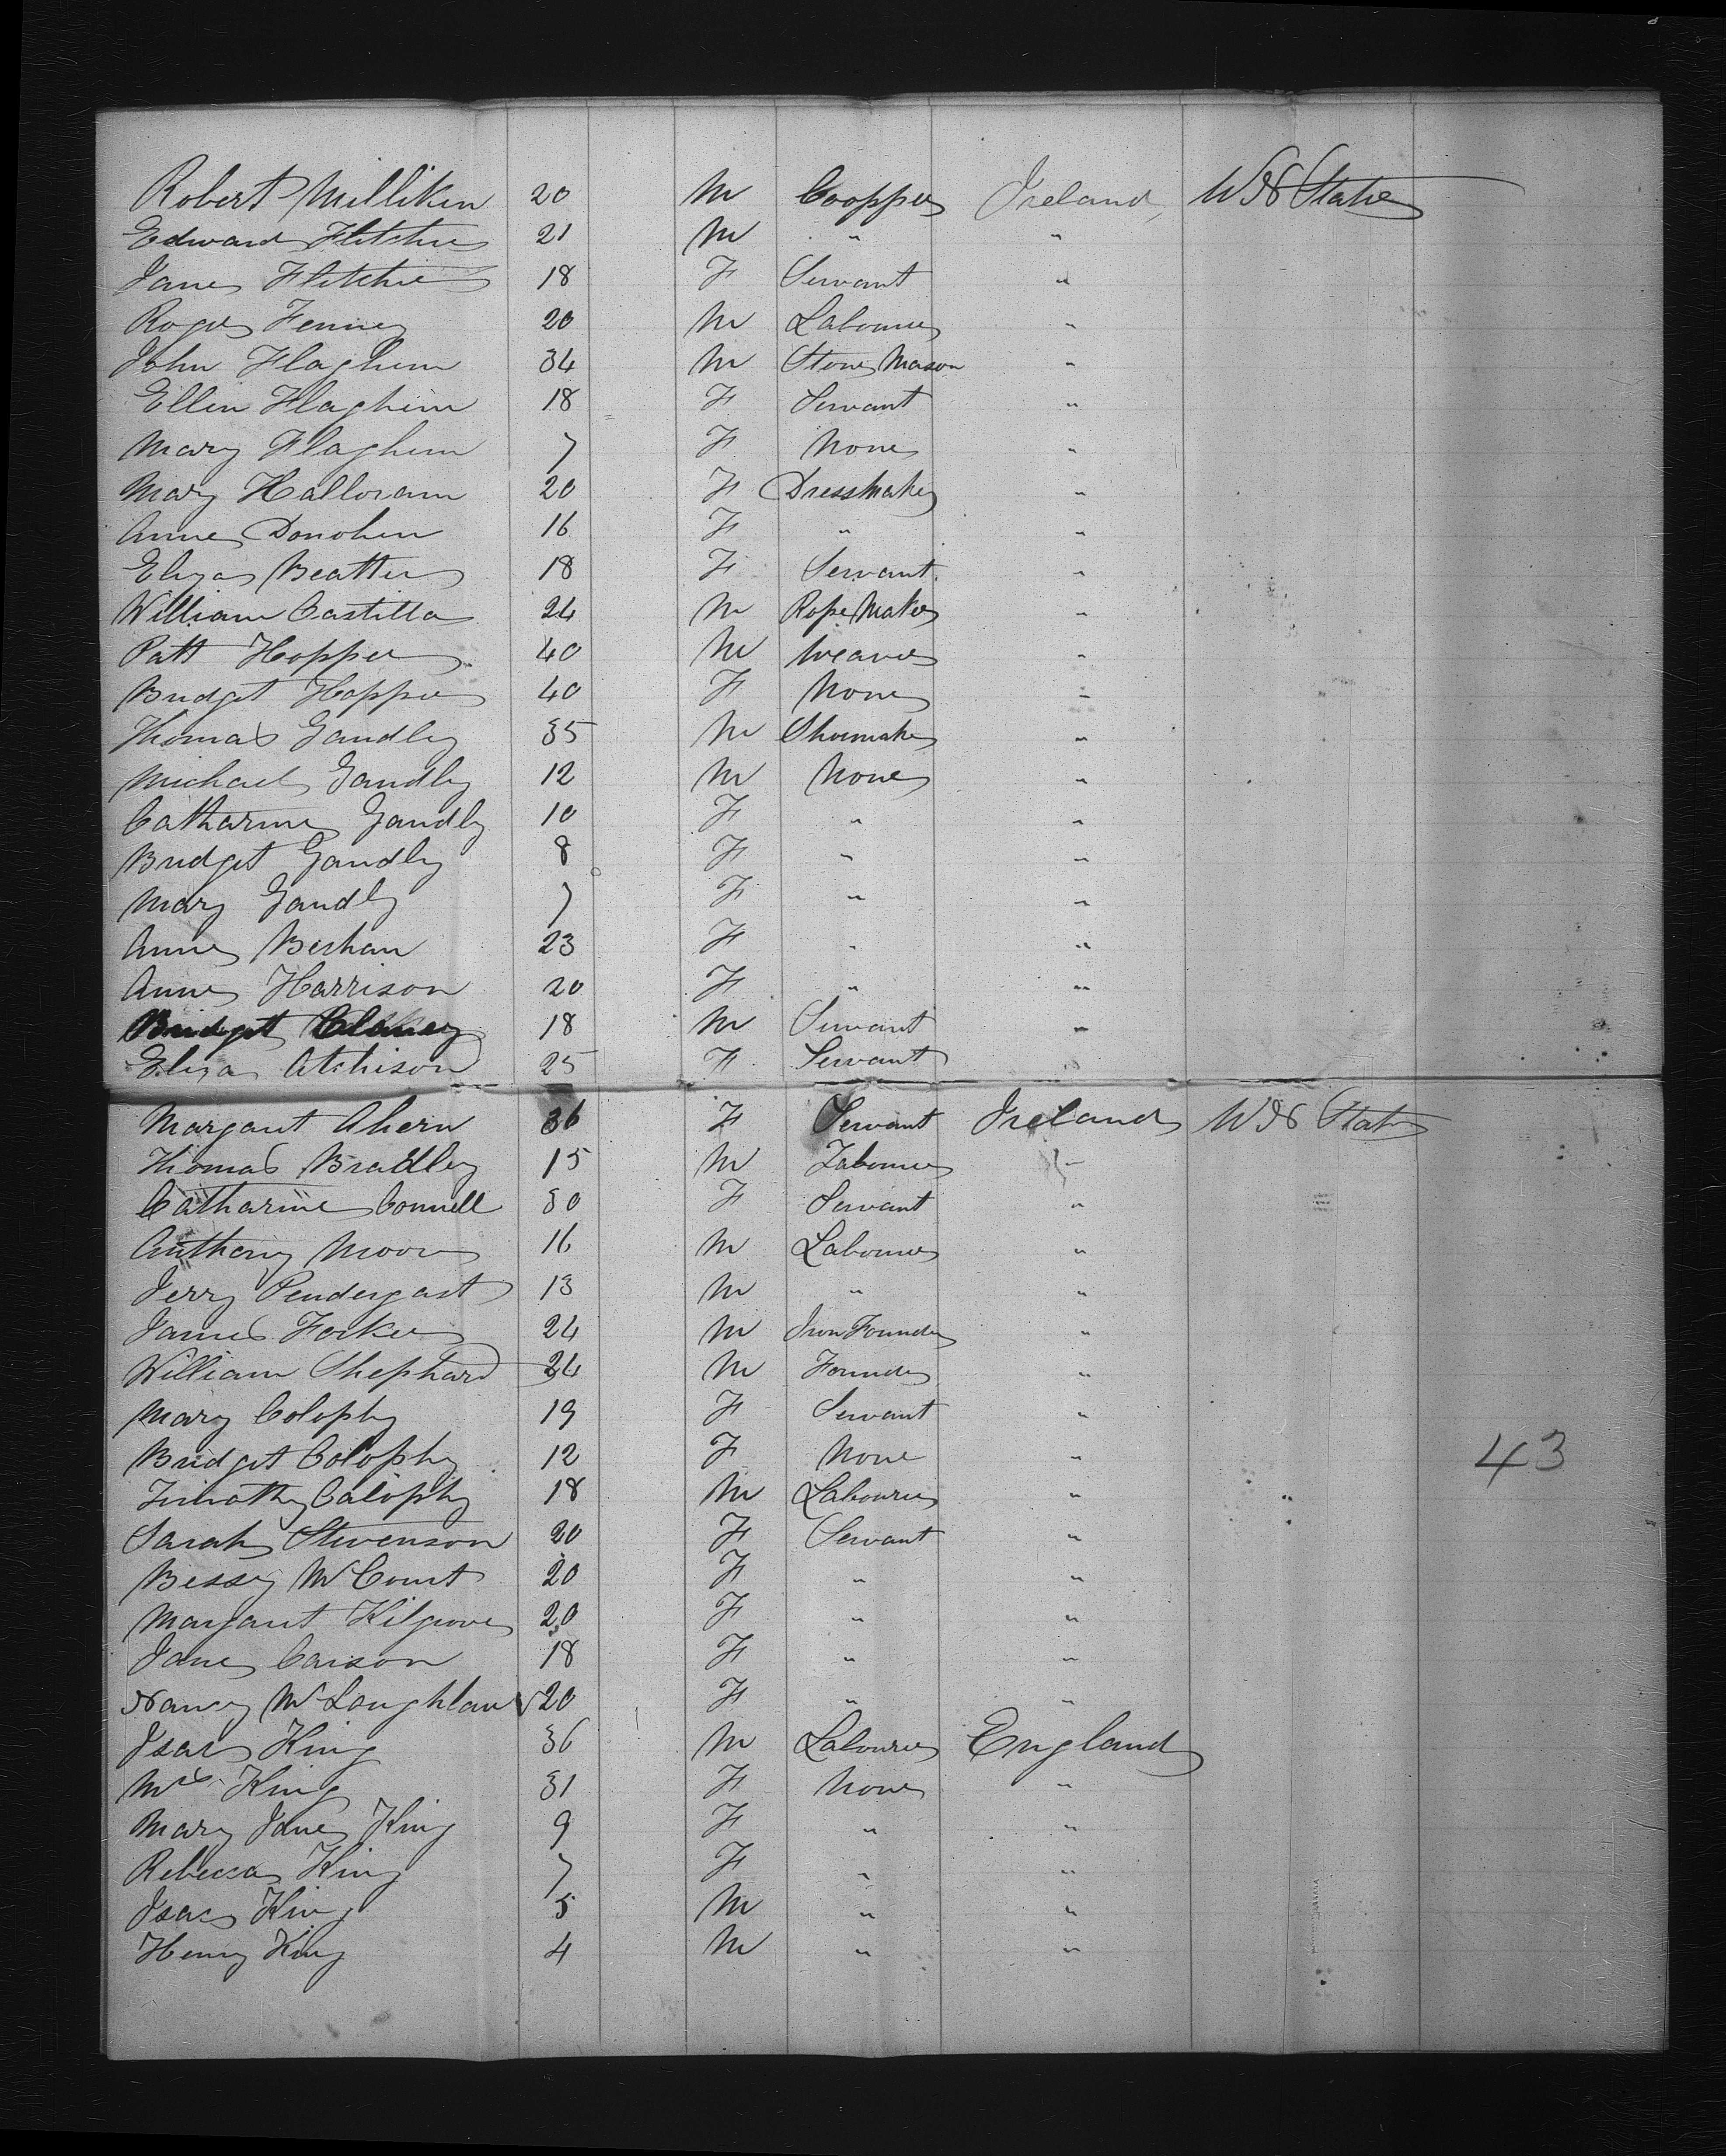 Robert Milliken 20 M Cooper Ireland U S States
Edward Fletcher 21 M " "
Jane Fletcher 18 F Servant "
Roger Feeney 20 M Labourer "
John Flaghen 34 M Stone Mason "
Ellen Flaghen 18 F Servant "
Mary Flaghen 7 F None "
Mary Halloram 20 F Dressmaker "
Anne Donohen 16 F " "
Eliza Beattie 18 F Servant "
William Castilla 24 M Rope Maker "
Patt Hopper 40 M Weaver "
Bridget Hopper 40 F None "
Thomas Gandly 35 M Shoemaker "
Michael Gandly 12 M None "
Catharine Gandly 10 F " "
Bridget Gandly 8 F " "
Mary Gandly 7 F " "
Anne Beshan 23 F " "
Anne Harrison 20 F " "
Bridget 18 M Servant "
Eliza Atchison 25 F Servant "
Margaret Ahern 36 F Servant Ireland U S States
Thomas Bradley 15 M Labourer "
Catharine Connell 30 F Servant "
Anthony Moore 16 M Labourer "
Jerry Pendergast 13 M " "
James Forker 24 M Iron Founder "
William Shephard 24 M Founder "
Mary Colophy 19 F Servant "
Bridget Colophy 12 F None "
43
Timothy Calophy 18 M Labourer "
Sarah Stevenson 20 F Servant "
Bessy McCourt 20 F " "
Margaret Kilgrove 20 F " "
Jane Carson 18 F " "
Nancy McLoughlan 20 F " "
Isac King 36 M Labourer England
Mrs King 31 F None "
Mary Jane King 9 F " "
Rebecca King 7 F " "
Isac King 5 M " "
Henry King 4 M " "